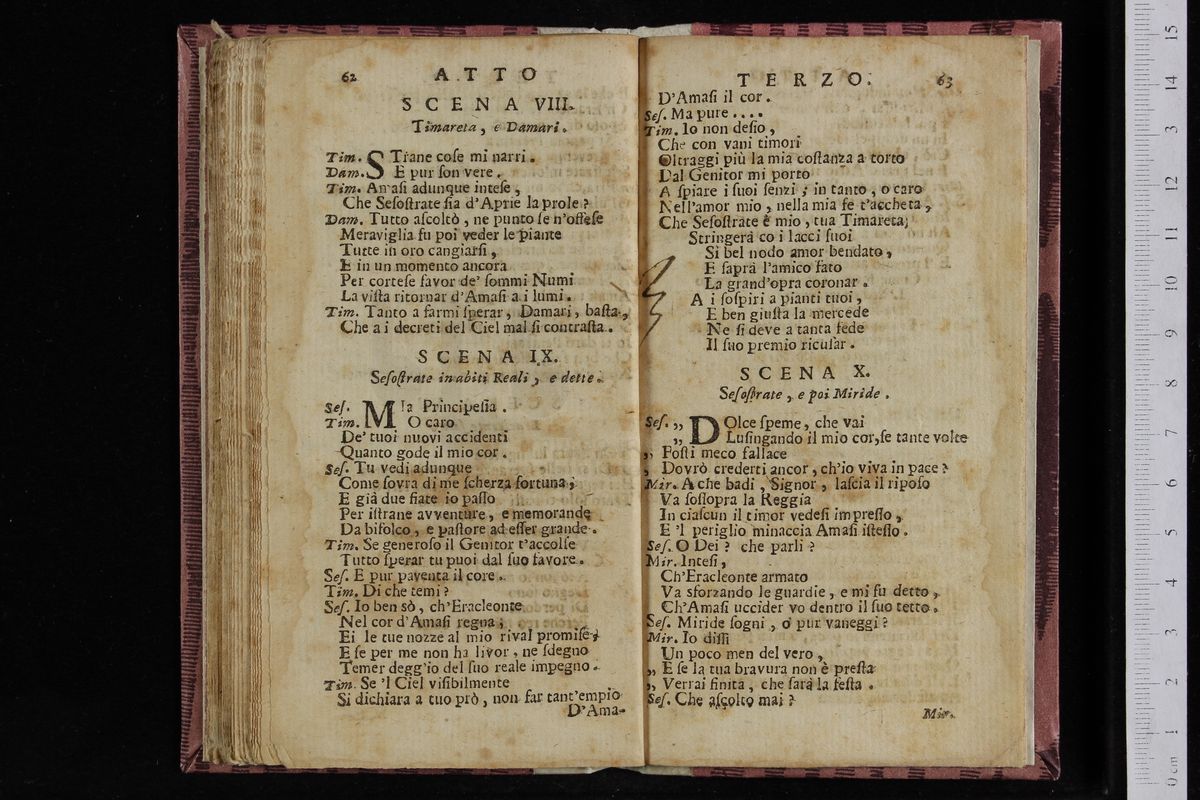 62 ATTO
SCENA VIII.
Timareta, e Damari.
Tim. STrane cose mi narri.
Dam. E pur son vere.
Tim. Amasi adunque intese,
Che Sesostrate sia d'Aprie la prole?
Dam. Tutto ascoltò, ne punto se n'offese
Meraviglia fu poi veder le piante
Tutte in oro cangiarsi,
E in un momento ancora
Per cortese favor de' sommi Numi
La vista ritornar d'Amasi a i lumi.
Tim. Tanto a farmi sperar, Damari, basta,
Che a i decreti del Ciel mal si contrasta.
SCENA IX.
Sesostrate in abiti Reali, e dette.
Ses. MIa Principessa.
Tim. O caro
De' tuoi nuovi accidenti
Quanto gode il mio cor.
Ses. Tu vedi adunque
Come sovra di me scherza fortuna;
E già due fiate io passo
Per istrane avventure, e memorande
Da bifolco, e pastore ad esser grande.
Tim. Se generoso il Genitor t'accolse
Tutto sperar tu puoi dal suo favore.
Ses. E pur paventa il core.
Tim. Di che temi?
Ses. Io ben sò, ch'Eracleonte
Nel cor d'Amasi regna;
Ei le tue nozze al mio rival promise;
E se per me non ha livor, ne sdegno
Temer degg'io del suo reale impegno.
Tim. Se 'l Ciel visibilmente
Si dichiara a tuo prò, non far tant'empio
D'Ama-
TERZO. 63
D'Amasi il cor.
Ses. Ma pure....
Tim. Io non desio,
Che con vani timori
Oltraggi più la mia costanza a torto
Dal Genitor mi porto
A spiare i suoi senzi; in tanto, o caro
Nell'amor mio, nella mia fe t'accheta,
Che Sesostrate è mio, tua Timareta;
Stringerà co i lacci suoi
Sì bel nodo amor bendato,
E saprà l'amico fato
La grand'opra coronar.
A i sospiri a pianti tuoi,
E ben giusta la mercede
Ne si deve a tanta fede
Il suo premio ricusar.
SCENA X.
Sesostrate, e poi Miride.
Ses. „ DOlce speme, che vai
„ Lusingando il mio cor, se tante volte
„ Fosti meco fallace
, Dovrò crederti ancor, ch'io viva in pace?
Mir. A che badi, Signor, lascia il riposo
Va sossopra la Reggia
In ciascun il timor vedesi impresso,
E 'l periglio minaccia Amasi istesso.
Ses. O Dei? che parli?
Mir. Intesi,
Ch'Eracleonte armato
Va sforzando le guardie, e mi fu detto,
Ch'Amasi uccider vo dentro il suo tetto.
Ses. Miride sogni, o pur vaneggi?
Mir. Io dissi
Un poco men del vero,
„ E se la tua bravura non è presta
„ Verrai finita, che sarà la festa.
Ses. Che ascolto mai?
Mir.